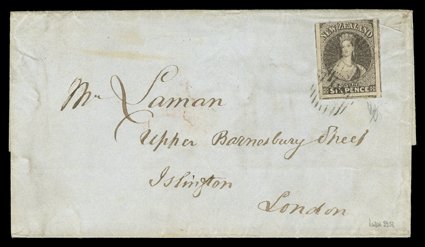 NEW ZEALAND
SIX PENCE
Mr Laman
Upper Barnesbury Street
Islington
London